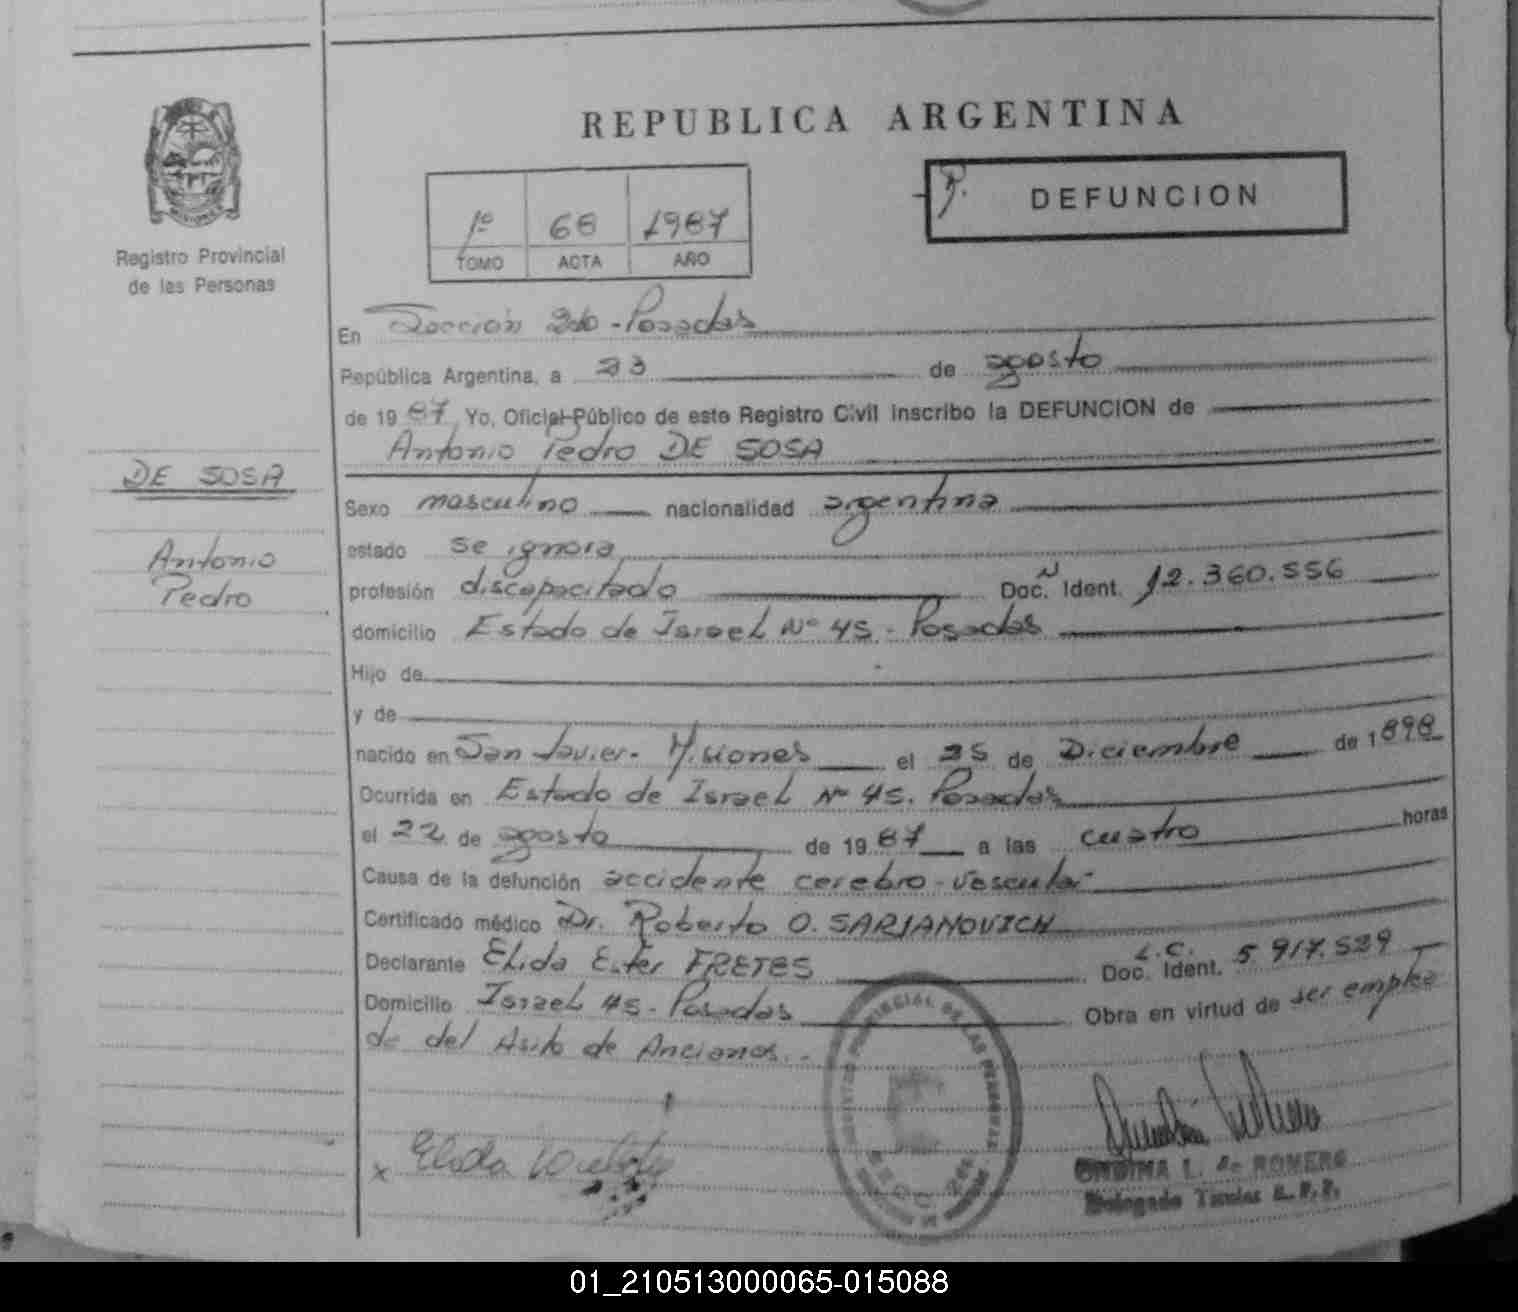 REPUBLICA ARGENTINA
MISIONES
Registro Provincial
de las Personas
1º 68 1987
TOMO ACTA AÑO
DEFUNCION
En Sección 2da - Posadas
República Argentina, a 23 de agosto
de 1987 Yo, Oficial Público de este Registro Civil inscribo la DEFUNCION de
Antonio Pedro DE SOSA
DE SOSA
Antonio
Pedro
Sexo masculino nacionalidad argentina
estado se ignora
profesión discapacitado Doc. Ident. 12.360.556
domicilio Estado de Israel Nº 45 - Posadas
Hijo de
y de
nacido en San Javier - Misiones el 25 de Diciembre de 1898
Ocurrida en Estado de Israel Nº 45. Posadas
el 22 de agosto de 1987 a las cuatro horas
Causa de la defunción accidente cerebro-vascular
Certificado médico Dr. Roberto O. SARJANOVICH
Declarante Elida Ester FRETES L.C. Doc. Ident. 5 917.529
Domicilio Israel 45 - Posadas Obra en virtud de ser emplea
do del Asilo de Ancianos.
REGISTRO PROVINCIAL DE LAS PERSONAS
x Elida
ONDINA L. de ROMERO
Delegado Titular R.P.P.
01_210513000065-015088